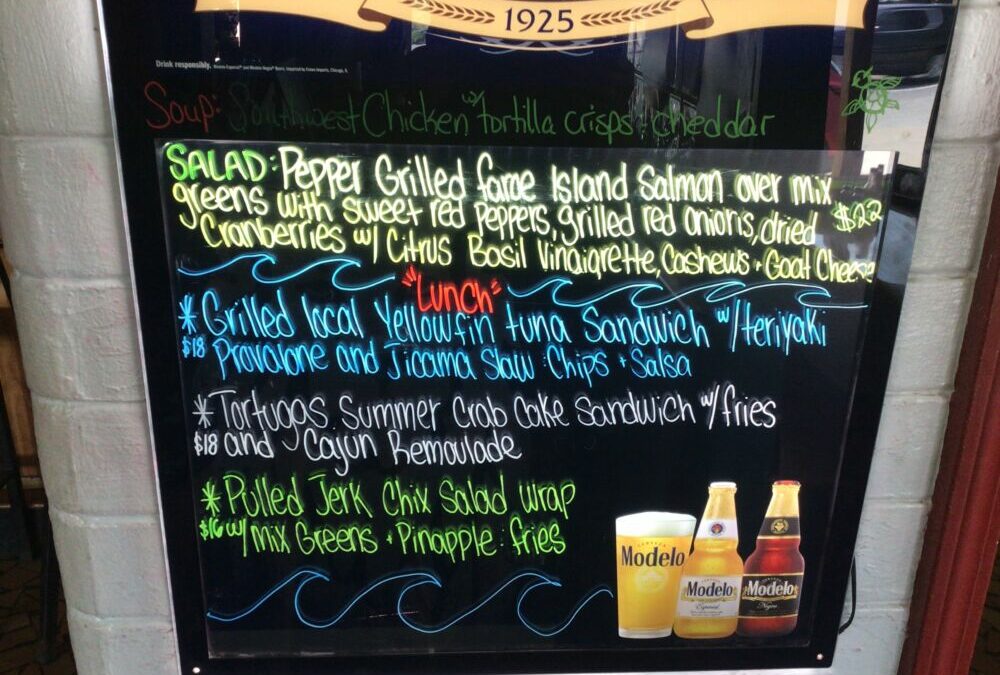 1925
Drink responsibly.
Soup: Southwest Chicken w/ tortilla crisps + cheddar
SALAD: Pepper Grilled faroe Island Salmon over mix
greens with sweet red peppers, grilled red onions, dried $22
Cranberries w/ Citrus Basil Vinaigrette, Cashews + Goat Cheese
"Lunch"
* Grilled local Yellowfin tuna Sandwich w/ teriyaki
$18 Provalone and Jicama Slaw Chips + Salsa
* Tortugas Summer Crab Cake Sandwich w/ fries
$18 and Cajun Remoulade
* Pulled Jerk Chix Salad wrap
$16 w/ Mix Greens + Pineapple fries
Modelo
Modelo
Especial
Modelo
Negra